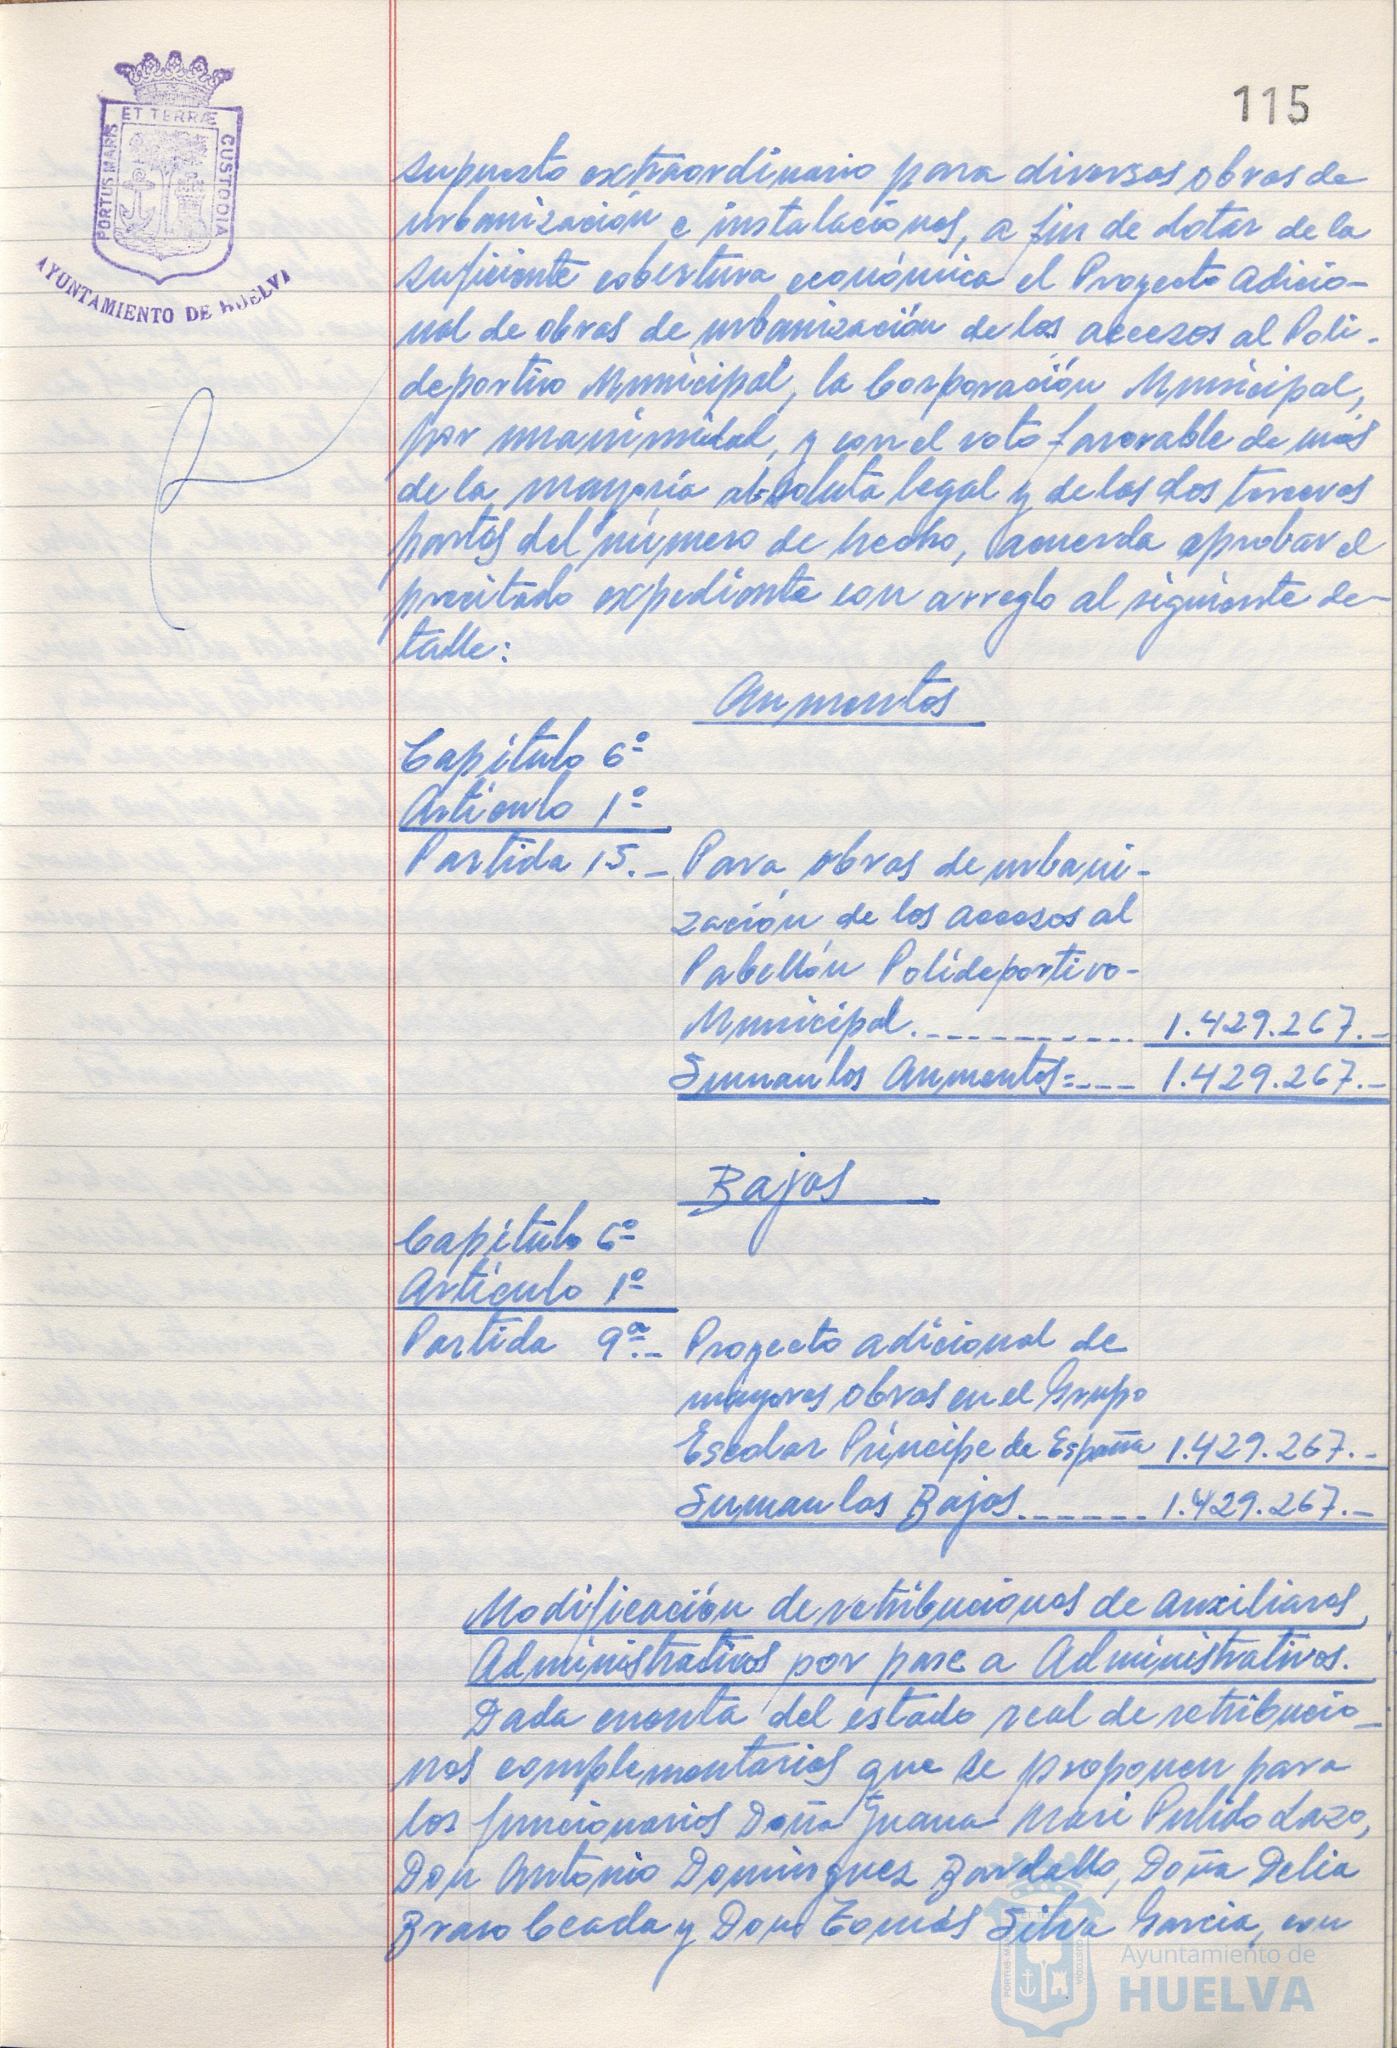 115
ET TERRÆ
PORTUS MARIS
CUSTODIA
AYUNTAMIENTO DE HUELVA
supuesto extraordinario para diversas obras de
urbanización e instalaciones, a fin de dotar de la
suficiente cobertura económica el Proyecto Adicio-
nal de obras de urbanización de los accesos al Poli-
deportivo Municipal, la Corporación Municipal,
por unanimidad, y con el voto favorable de más
de la mayoría absoluta legal y de las dos terceras
partes del número de hecho, acuerda aprobar el
precitado expediente con arreglo al siguiente de-
talle:
Aumentos
Capítulo 6º
Artículo 1º
Partida 15.- Para obras de urbani-
zación de los accesos al
Pabellón Polideportivo-
Municipal.---------- 1.429.267.-
Suman los Aumentos=--- 1.429.267.-
Bajas
Capítulo 6º
Artículo 1º
Partida 9ª.- Proyecto adicional de
mayores obras en el Grupo
Escolar Príncipe de España 1.429.267.-
Suman las Bajas.------ 1.429.267.-
Modificación de retribuciones de Auxiliares
Administrativos por pase a Administrativos.
Dada cuenta del estado real de retribucio-
nes complementarias que se proponen para
los funcionarios Doña Juana Mari Pulido Lazo,
Don Antonio Domínguez Bardallo, Doña Delia
Bravo Ceada y Don Tomás Silva García, con
Ayuntamiento de
HUELVA